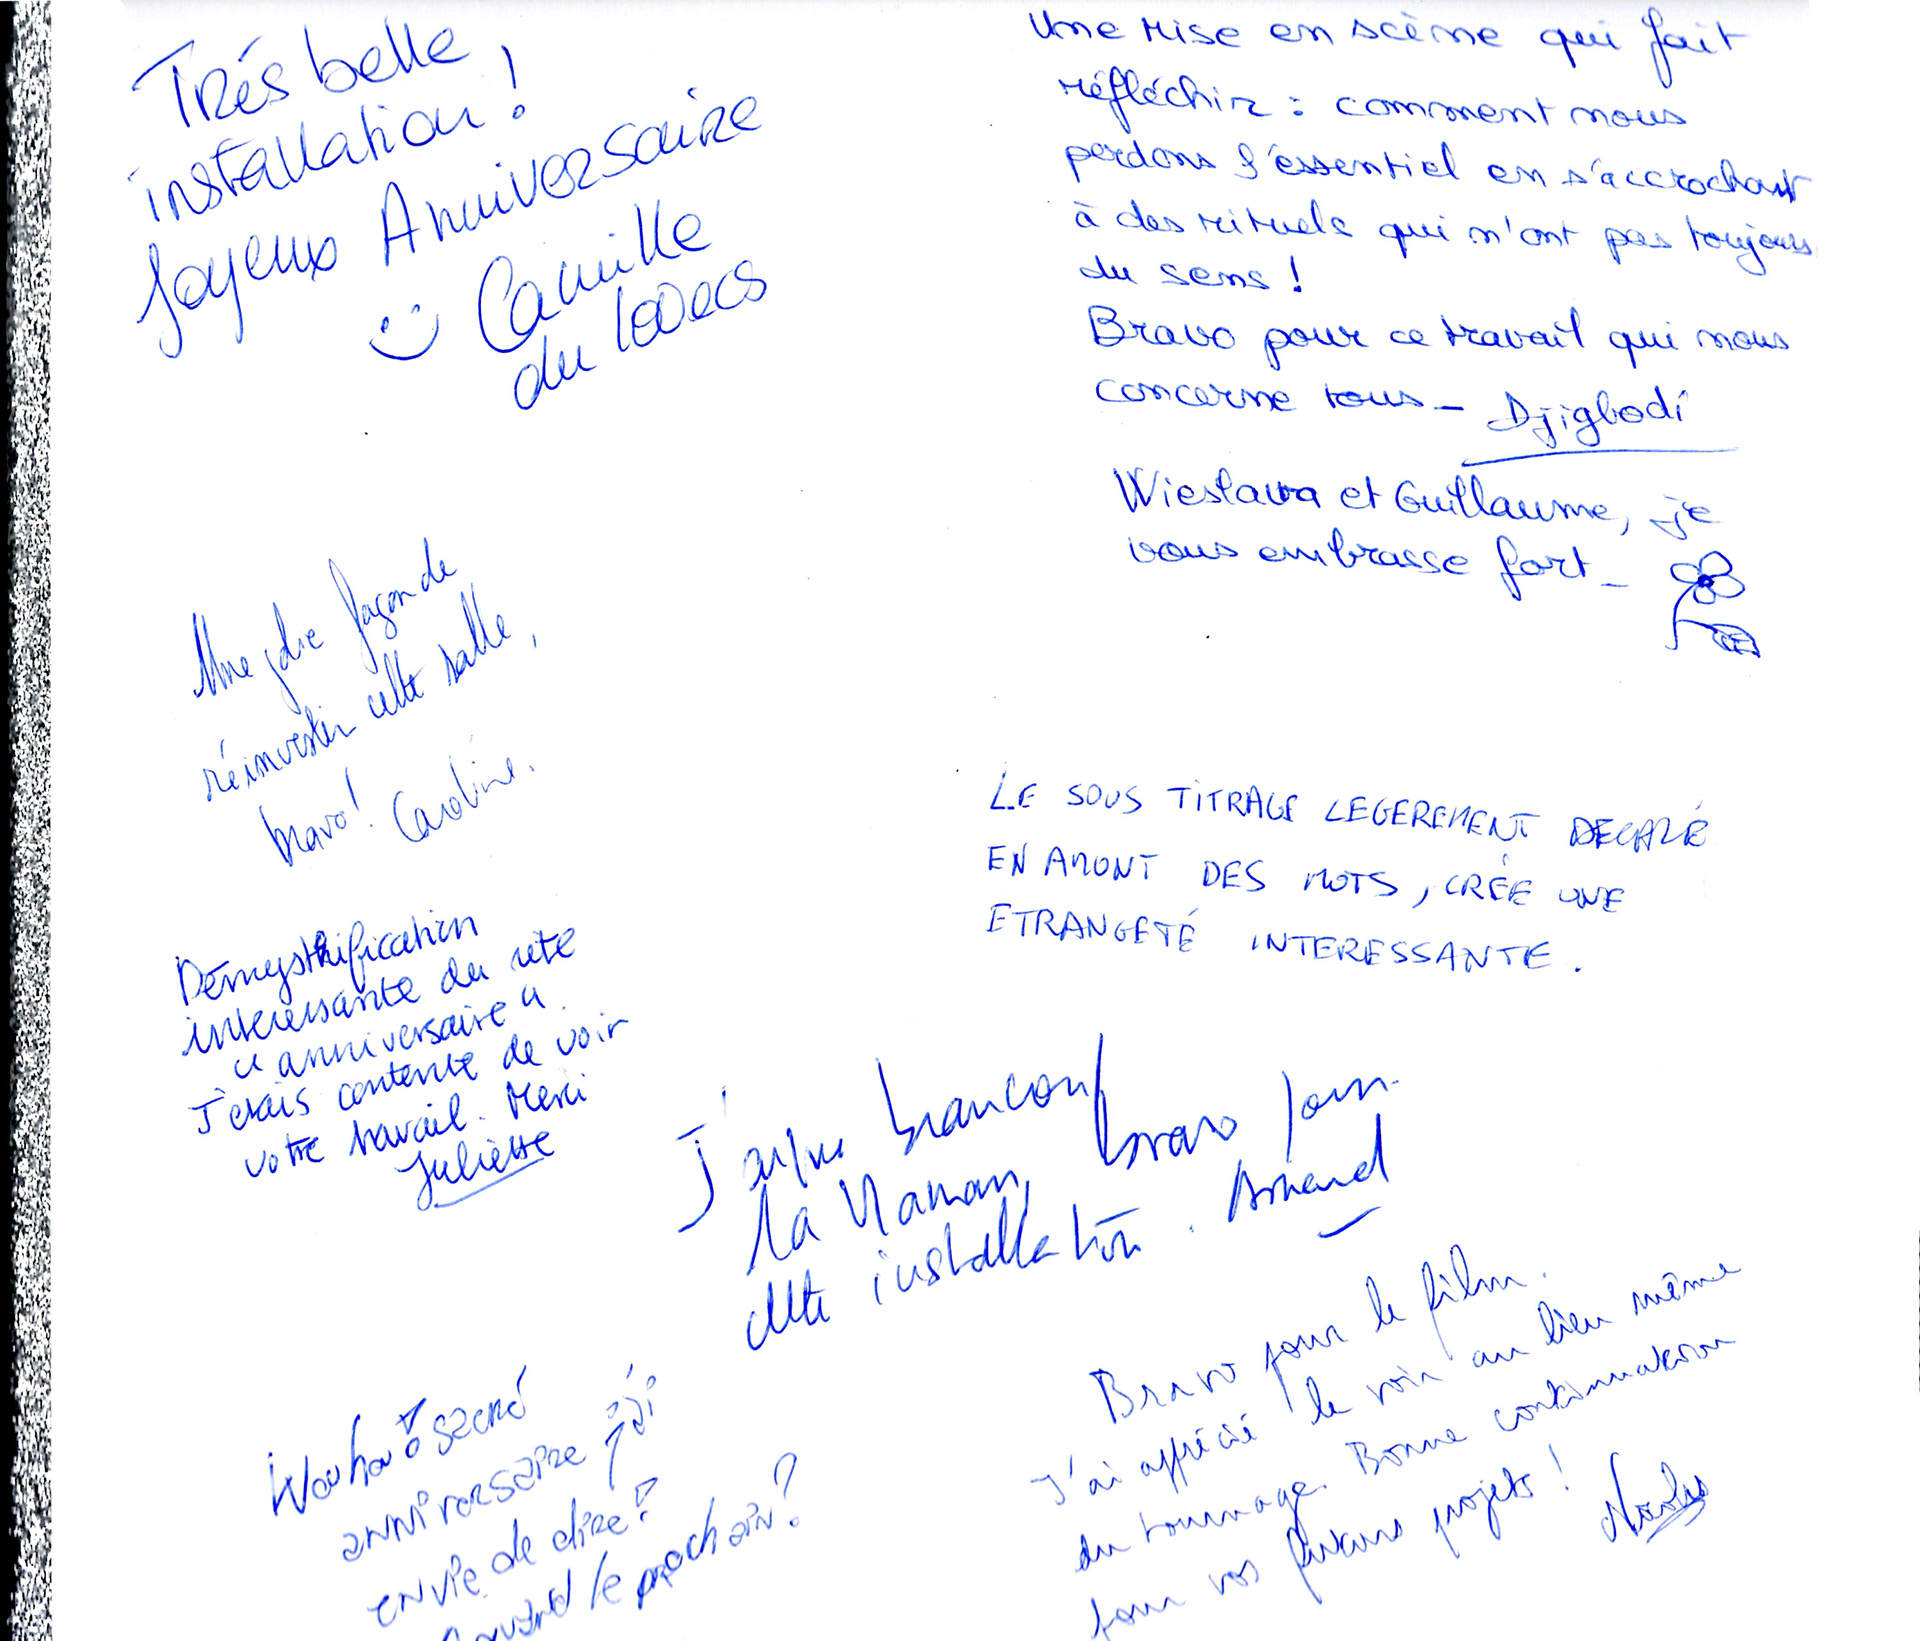 Trés belle
installation !
Joyeux Anniversaire
Camille
du 100ecs
Une mise en scène qui fait
réfléchir : comment nous
perdons l'essentiel en s'accrochant
à des rituels qui n'ont pas toujours
du sens !
Bravo pour ce travail qui nous
concerne tous - Djigbodi
Wieslava et Guillaume, je
vous embrasse fort -
Une jolie façon de
réinvestir cette salle,
bravo ! Caroline.
LE SOUS TITRAGE LEGEREMENT DECALÉ
EN AMONT DES MOTS, CRÉE UNE
ETRANGETÉ INTERESSANTE.
Démysthification
interessante du rite
" anniversaire "
J'etais contente de voir
votre travail. Merci
Juliette
J'aime beaucoup
la Maman, bravo pour
cette installation. Arnaud
Bravo pour le film.
J'ai apprécié le voir au lieu même
du tournage. Bonne continuation
pour vos futurs projets !
Wouhaô sacré
anniversaire j'ai
envie de dire !
Quand le prochain ?